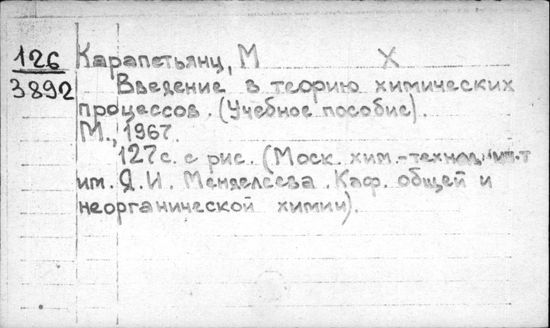 126
3892
Карапетьянц, М Х
Введение в теорию химических
процессов. (Учебное пособие).
М., 1967.
127с. с рис. (Моск. хим.-технол. ин-т
им. Д. И. Менделеева. Каф. общей и
неорганической химии).